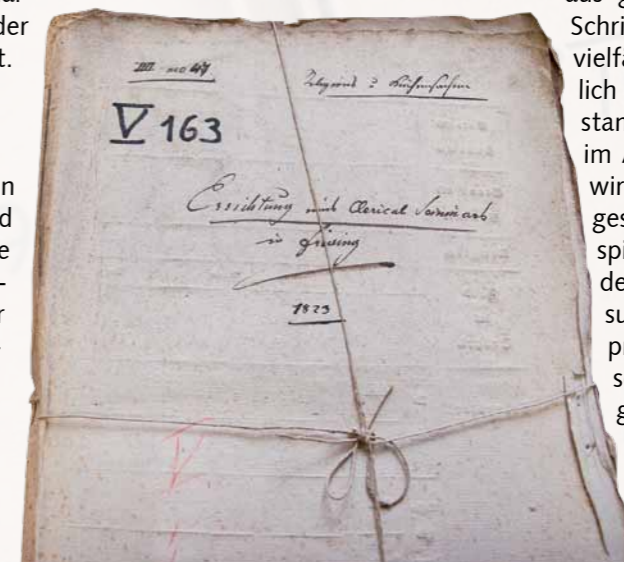 der
t.
n
d
e
-
r
no 47
Religions u Kirchensachen
V 163
Errichtung eines Clerical Seminars
in Freising
1823
Schri
vielfa
lich
stan
im
wir
ges
spi
de
su
pr
s
g